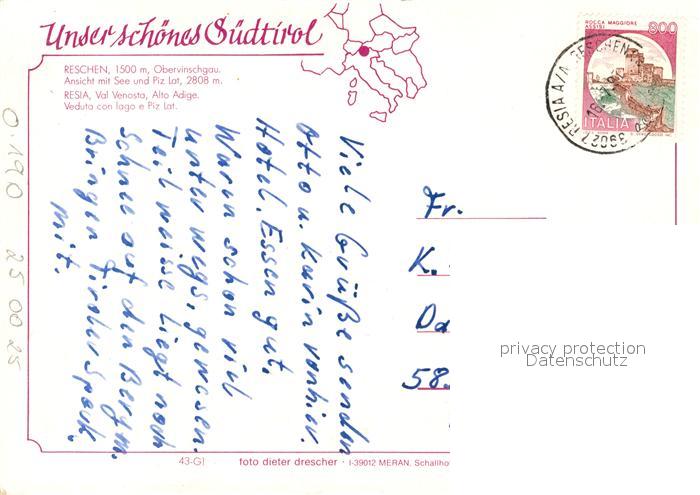 Unser schönes Südtirol
RESCHEN, 1500 m, Obervinschgau.
Ansicht mit See und Piz Lat, 2808 m.
RESIA, Val Venosta, Alto Adige.
Veduta con lago e Piz Lat.
ROCCA MAGGIORE
ASSISI
800
ITALIA
39027 RESIA A/A RESCHEN
Viele Grüße senden
Otto u. Karin von hier.
Hotel, Essen gut.
Waren schon viel
unterwegs, gewesen.
Teilweisse liegt noch
Schnee auf den Bergen.
Bringen Tiroler Speck
mit.
Fr.
K.
Da
58
privacy protection
Datenschutz
0.190 25 00 25
43-GI
foto dieter drescher · I-39012 MERAN, Schallho